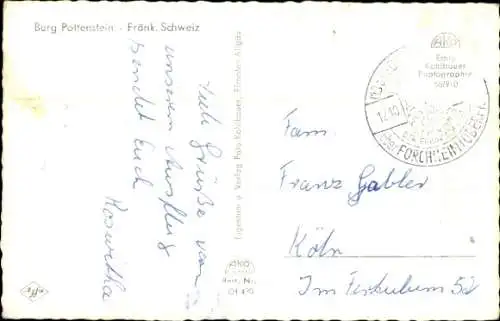 Burg Pottenstein - Fränk. Schweiz
Viele Grüße von
unserem Ausflug
sendet Euch
Roswitha
Eigentum u. Verlag Erno Kohlbauer, Pfronten-Allgäu
AKO
Best. Nr.
AKO
Erno
Kohlbauer
Photographie
FORCHHEIM
Fam.
Franz Gabler
Köln
Im Ferkulum 52